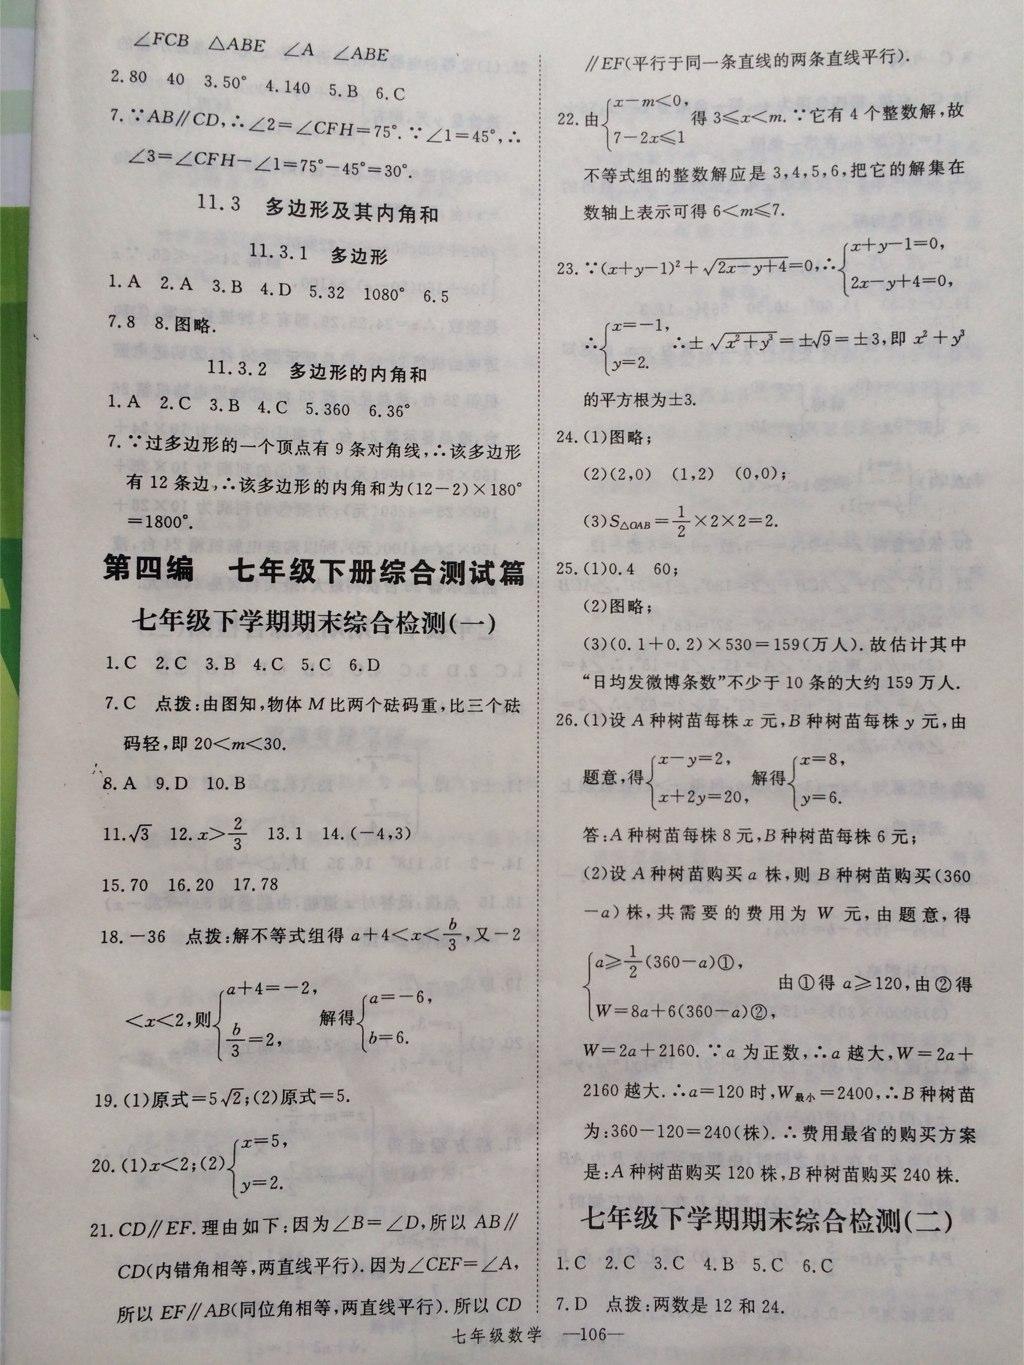 ∠FCB △ABE ∠A ∠ABE
2.80 40 3.50° 4.140 5.B 6.C
7.∵AB∥CD,∴∠2=∠CFH=75°.∵∠1=45°,∴
∠3=∠CFH-∠1=75°-45°=30°.
11.3 多边形及其内角和
11.3.1 多边形
1.A 2.A 3.B 4.D 5.32 1080° 6.5
7.8 8.图略.
11.3.2 多边形的内角和
1.A 2.C 3.B 4.C 5.360 6.36°
7.∵过多边形的一个顶点有9条对角线,∴该多边形
有12条边,∴该多边形的内角和为(12-2)×180°
=1800°.
第四编 七年级下册综合测试篇
七年级下学期期末综合检测(一)
1.C 2.C 3.B 4.C 5.C 6.D
7.C 点拨:由图知,物体M比两个砝码重,比三个砝
码轻,即20<m<30.
8.A 9.D 10.B
11.√3 12.x>2/3 13.1 14.(-4,3)
15.70 16.20 17.78
18.-36 点拨:解不等式组得a+4<x<b/3,又-2
<x<2,则{a+4=-2, b/3=2, 解得{a=-6, b=6.
19.(1)原式=5√2;(2)原式=5.
20.(1)x<2;(2){x=5, y=2.
21.CD∥EF.理由如下:因为∠B=∠D,所以AB∥
CD(内错角相等,两直线平行).因为∠CEF=∠A,
所以EF∥AB(同位角相等,两直线平行).所以CD
∥EF(平行于同一条直线的两条直线平行).
22.由{x-m<0, 7-2x≤1 得3≤x<m.∵它有4个整数解,故
不等式组的整数解应是3,4,5,6,把它的解集在
数轴上表示可得6<m≤7.
23.∵(x+y-1)²+√(2x-y+4)=0,∴{x+y-1=0, 2x-y+4=0,
∴{x=-1, y=2. ∴±√(x²+y³)=±√9=±3,即x²+y³
的平方根为±3.
24.(1)图略;
(2)(2,0) (1,2) (0,0);
(3)S△OAB=1/2×2×2=2.
25.(1)0.4 60;
(2)图略;
(3)(0.1+0.2)×530=159(万人).故估计其中
“日均发微博条数”不少于10条的大约159万人.
26.(1)设A种树苗每株x元,B种树苗每株y元,由
题意,得{x-y=2, x+2y=20, 解得{x=8, y=6.
答:A种树苗每株8元,B种树苗每株6元;
(2)设A种树苗购买a株,则B种树苗购买(360
-a)株,共需要的费用为W元,由题意,得
{a≥1/2(360-a)①, W=8a+6(360-a)②, 由①得a≥120,由②得
W=2a+2160.∵a为正数,∴a越大,W=2a+
2160越大.∴a=120时,W最小=2400,∴B种树苗
为:360-120=240(株).∴费用最省的购买方案
是:A种树苗购买120株,B种树苗购买240株.
七年级下学期期末综合检测(二)
1.C 2.C 3.C 4.B 5.C 6.C
7.D 点拨:两数是12和24.
七年级数学 —106—